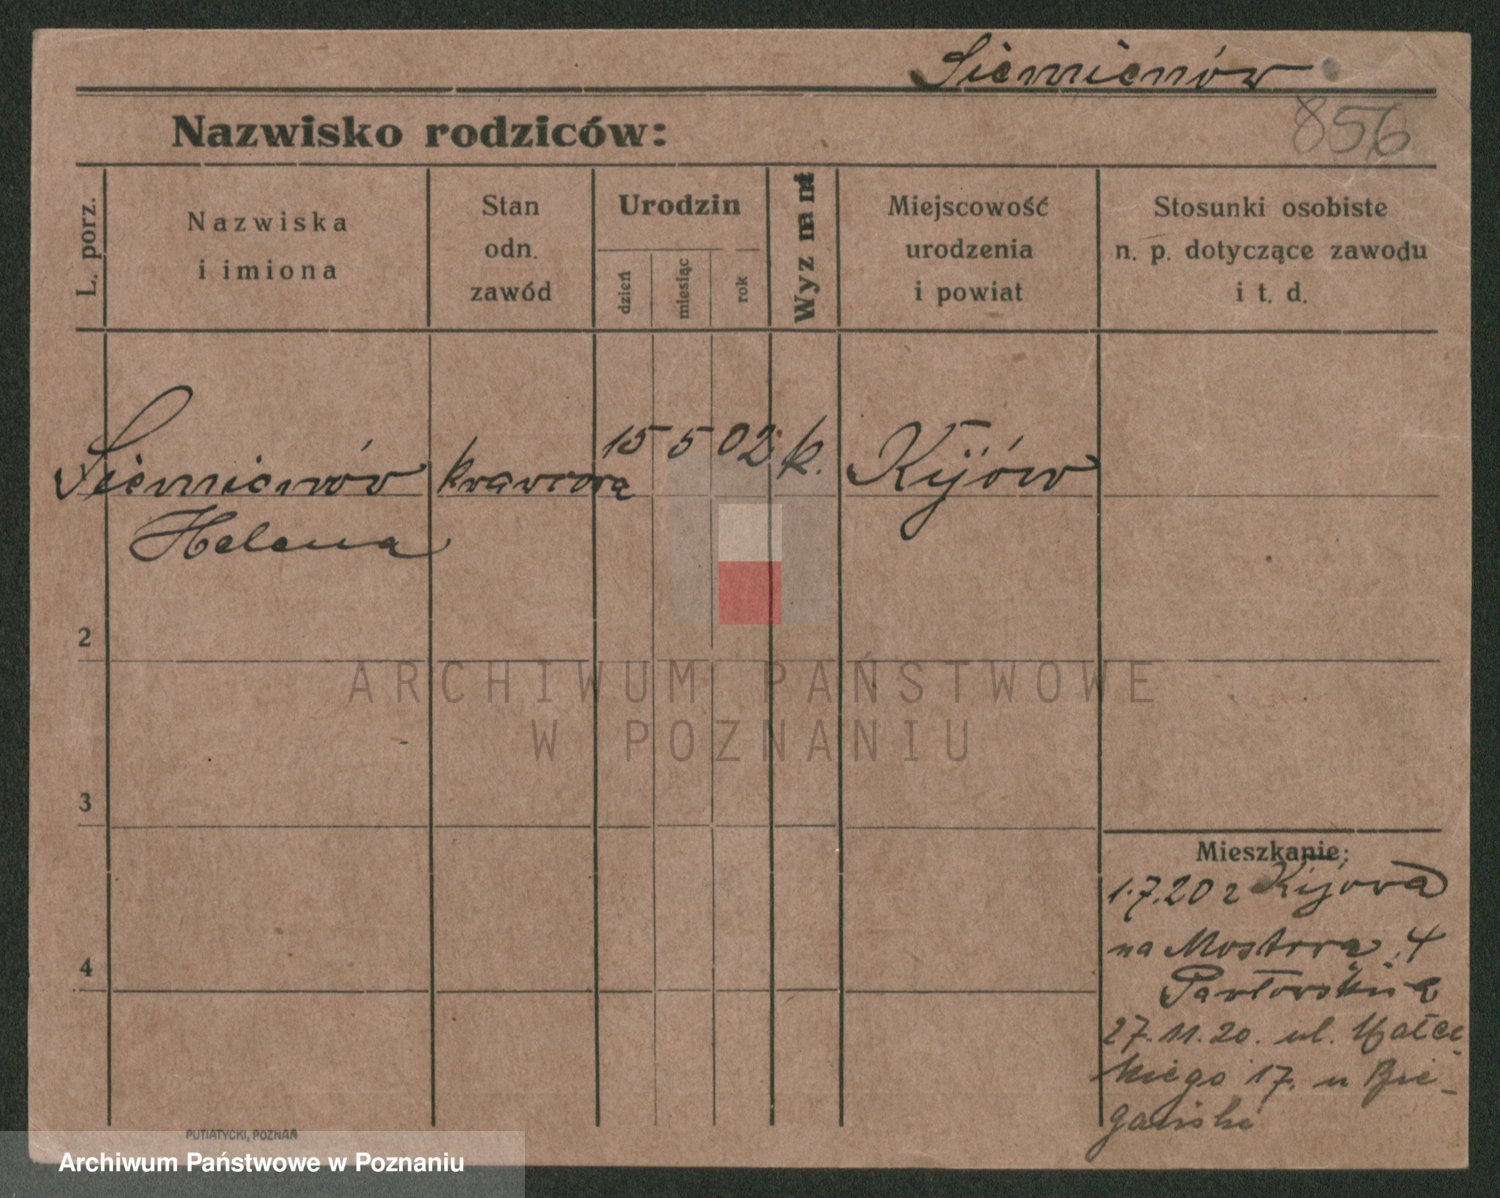 Siemienów
856
Nazwisko rodziców:
L. porz.
Nazwiska
i imiona
Stan
odn.
zawód
Urodzin
dzień
miesiąc
rok
Wyz
Miejscowość
urodzenia
i powiat
Stosunki osobiste
n. p. dotyczące zawodu
i t. d.
Siemienów krawcowa 15 5 02 k. Kijów
Helena
2
3
4
Mieszkanie:
1.7.20 z Kijowa
na Mostowa 4
27.11.20. ul. Małec
kiego 17. u Bie-
gańska
PUTIATYCKI, POZNAŃ
ARCHIWUM PAŃSTWOWE
W POZNANIU
Archiwum Państwowe w Poznaniu